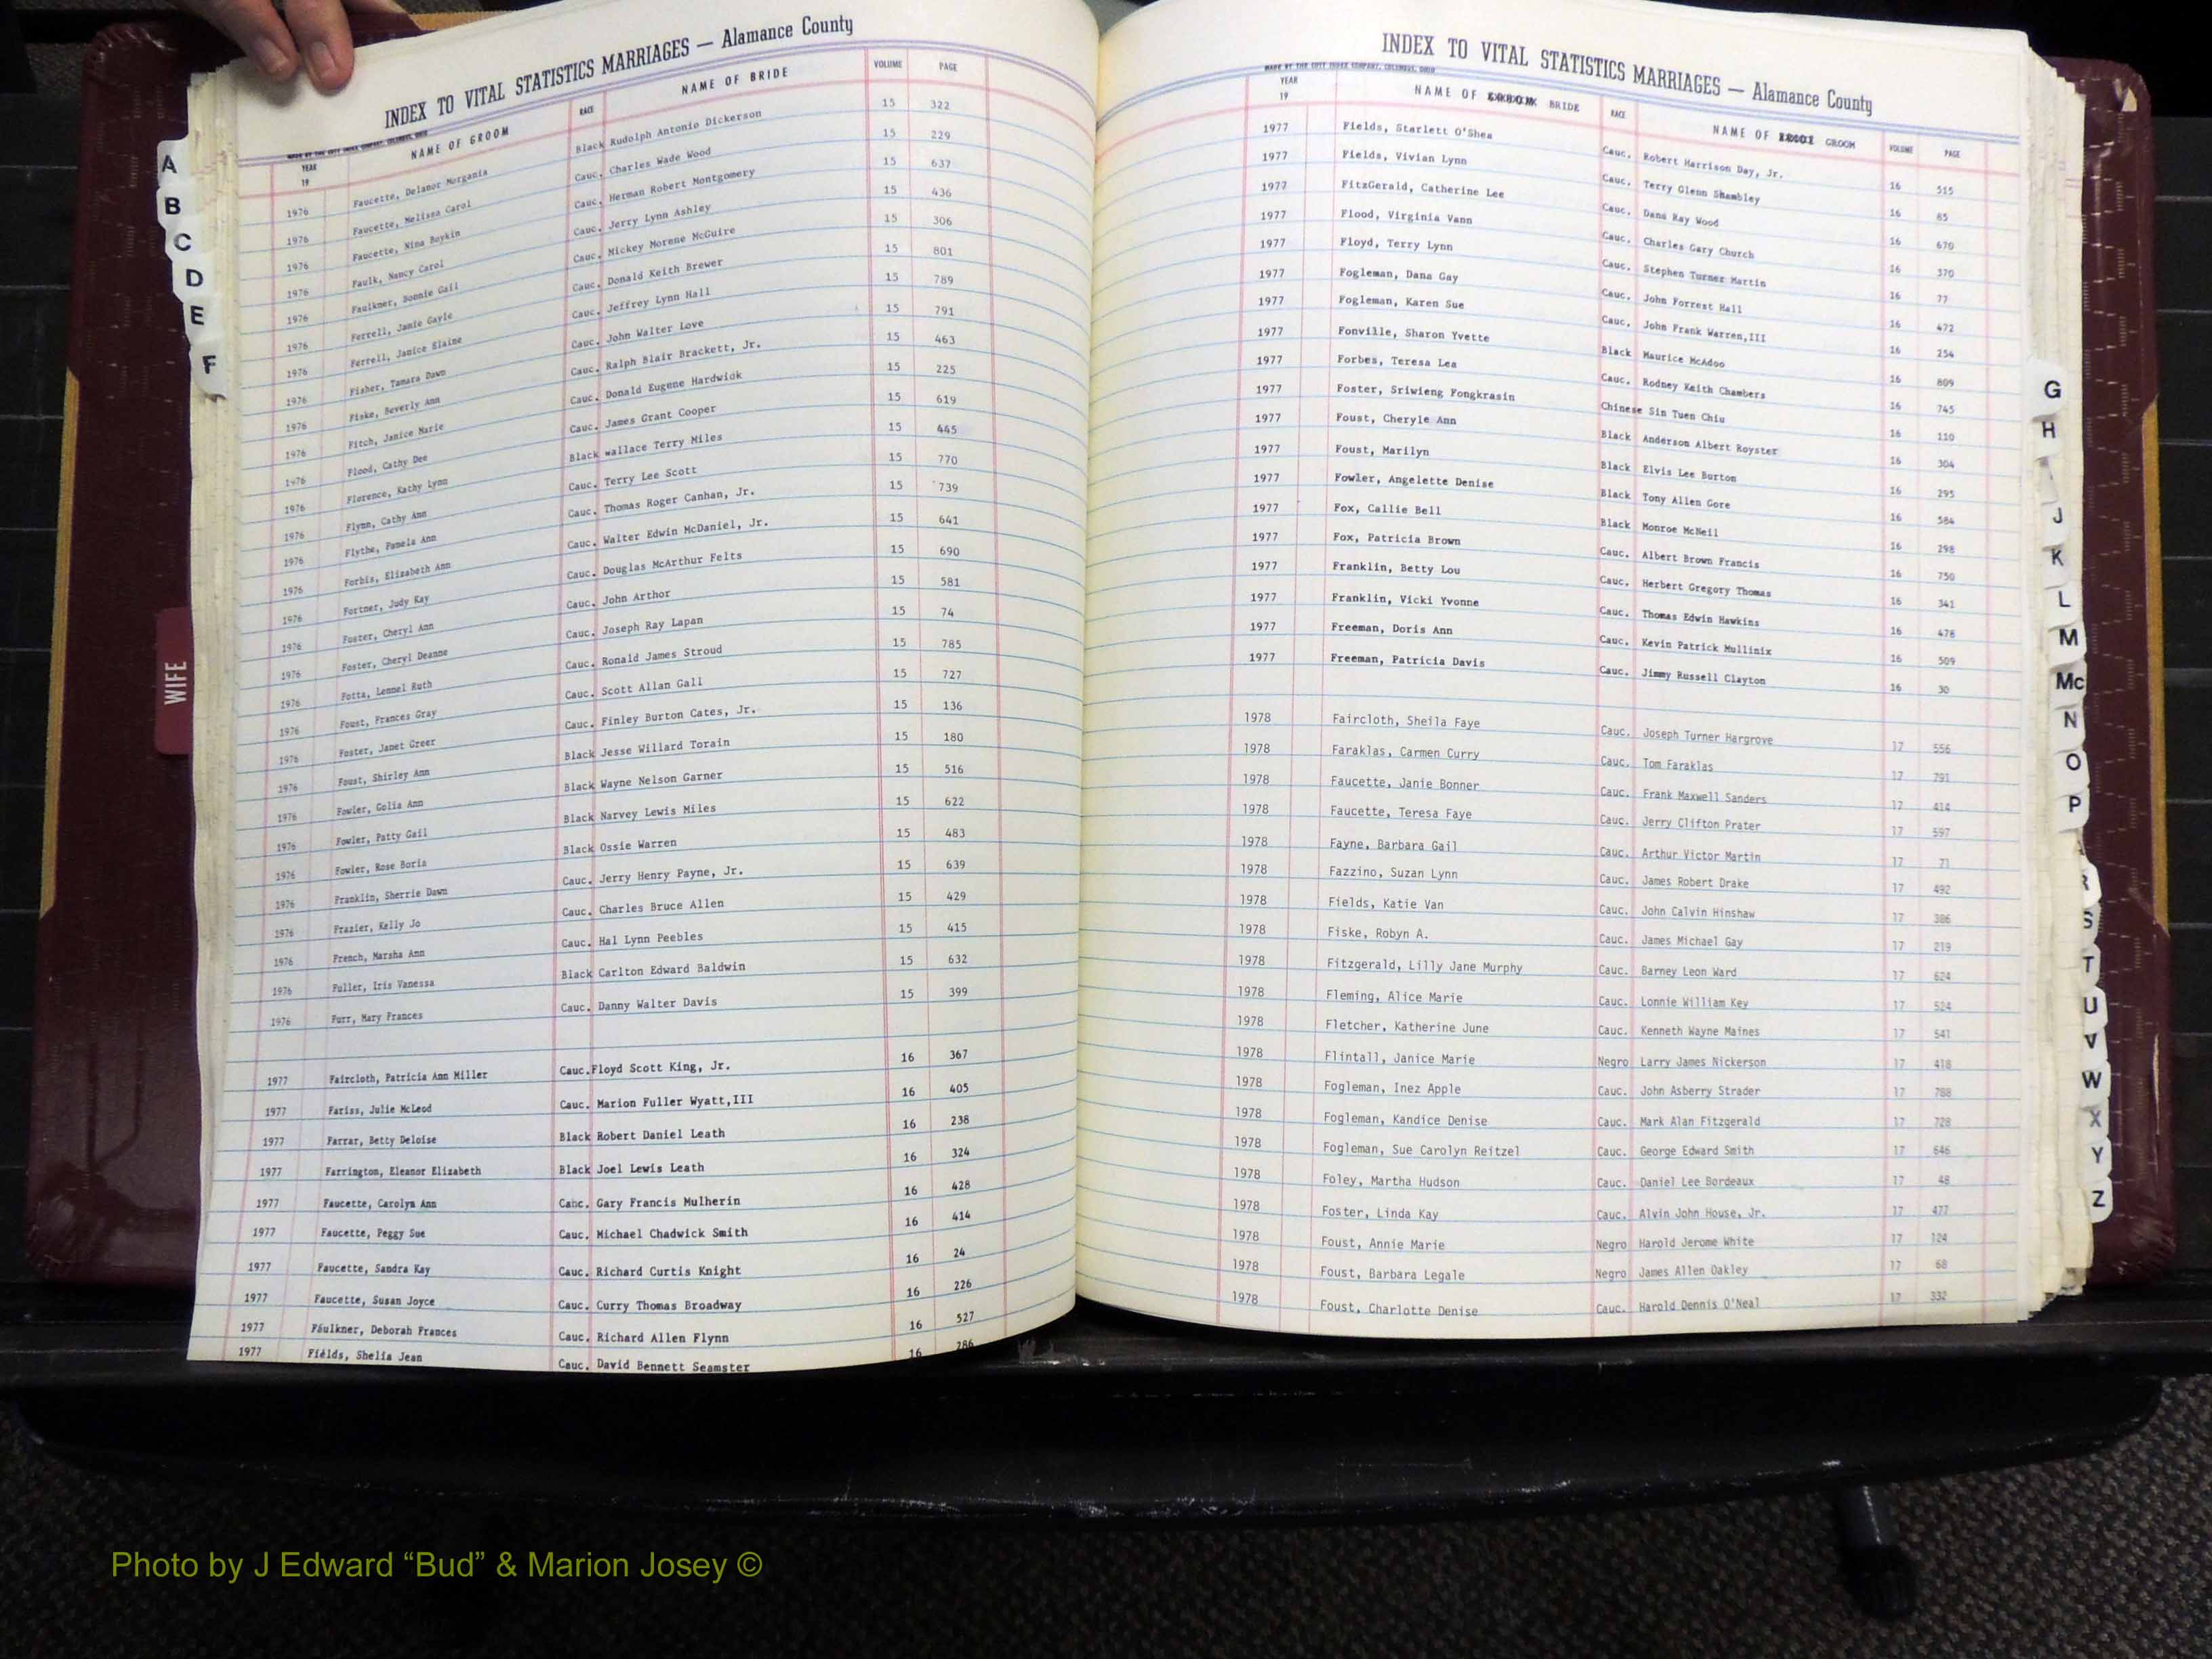 INDEX TO VITAL STATISTICS MARRIAGES — Alamance County
YEAR 19 NAME OF GROOM RACE NAME OF BRIDE VOLUME PAGE
1976 Faucette, Delanor Morgania Black Rudolph Antonio Dickerson 15 322
1976 Faucette, Melissa Carol Cauc. Charles Wade Wood 15 229
1976 Faucette, Nina Boykin Cauc. Herman Robert Montgomery 15 637
1976 Faulk, Nancy Carol Cauc. Jerry Lynn Ashley 15 436
1976 Faulkner, Bonnie Gail Cauc. Mickey Morene McGuire 15 306
1976 Ferrell, Jamie Gayle Cauc. Donald Keith Brewer 15 801
1976 Ferrell, Janice Elaine Cauc. Jeffrey Lynn Hall 15 789
1976 Fisher, Tamara Dawn Cauc. John Walter Love 15 791
1976 Fiske, Beverly Ann Cauc. Ralph Blair Brackett, Jr. 15 463
1976 Fitch, Janice Marie Cauc. Donald Eugene Hardwick 15 225
1976 Flood, Cathy Dee Cauc. James Grant Cooper 15 619
1976 Florence, Kathy Lynn Black wallace Terry Miles 15 445
1976 Flynn, Cathy Ann Cauc. Terry Lee Scott 15 770
1976 Flythe, Pamela Ann Cauc. Thomas Roger Canhan, Jr. 15 739
1976 Forbis, Elizabeth Ann Cauc. Walter Edwin McDaniel, Jr. 15 641
1976 Fortner, Judy Kay Cauc. Douglas McArthur Felts 15 690
1976 Foster, Cheryl Ann Cauc. John Arthor 15 581
1976 Foster, Cheryl Deanne Cauc. Joseph Ray Lapan 15 74
1976 Fotta, Lennel Ruth Cauc. Ronald James Stroud 15 785
1976 Foust, Frances Gray Cauc. Scott Allan Gall 15 727
1976 Foster, Janet Greer Cauc. Finley Burton Cates, Jr. 15 136
1976 Foust, Shirley Ann Black Jesse Willard Torain 15 180
1976 Fowler, Golia Ann Black Wayne Nelson Garner 15 516
1976 Fowler, Patty Gail Black Narvey Lewis Miles 15 622
1976 Fowler, Rose Boria Black Ossie Warren 15 483
1976 Franklin, Sherrie Dawn Cauc. Jerry Henry Payne, Jr. 15 639
1976 Frazier, Kelly Jo Cauc. Charles Bruce Allen 15 429
1976 French, Marsha Ann Cauc. Hal Lynn Peebles 15 415
1976 Fuller, Iris Vanessa Black Carlton Edward Baldwin 15 632
1976 Furr, Mary Frances Cauc. Danny Walter Davis 15 399
1977 Faircloth, Patricia Ann Miller Cauc. Floyd Scott King, Jr. 16 367
1977 Fariss, Julie McLeod Cauc. Marion Fuller Wyatt,III 16 405
1977 Farrar, Betty Deloise Black Robert Daniel Leath 16 238
1977 Farrington, Eleanor Elizabeth Black Joel Lewis Leath 16 324
1977 Faucette, Carolyn Ann Cahc. Gary Francis Mulherin 16 428
1977 Faucette, Peggy Sue Cauc. Michael Chadwick Smith 16 414
1977 Faucette, Sandra Kay Cauc. Richard Curtis Knight 16 24
1977 Faucette, Susan Joyce Cauc. Curry Thomas Broadway 16 226
1977 Faulkner, Deborah Frances Cauc. Richard Allen Flynn 16 527
1977 Fields, Shelia Jean Cauc. David Bennett Seamster 16 286
INDEX TO VITAL STATISTICS MARRIAGES — Alamance County
MADE BY THE COTT INDEX COMPANY, COLUMBUS, OHIO
YEAR 19 NAME OF BRIDE RACE NAME OF GROOM VOLUME PAGE
1977 Fields, Starlett O'Shea Cauc. Robert Harrison Day, Jr. 16 515
1977 Fields, Vivian Lynn Cauc. Terry Glenn Shambley 16 65
1977 FitzGerald, Catherine Lee Cauc. Dana Ray Wood 16 670
1977 Flood, Virginia Vann Cauc. Charles Gary Church 16 370
1977 Floyd, Terry Lynn Cauc. Stephen Turner Martin 16 77
1977 Fogleman, Dana Gay Cauc. John Forrest Hall 16 472
1977 Fogleman, Karen Sue Cauc. John Frank Warren,III 16 254
1977 Fonville, Sharon Yvette Black Maurice McAdoo 16 809
1977 Forbes, Teresa Lea Cauc. Rodney Keith Chambers 16 745
1977 Foster, Sriwieng Fongkrasin Chinese Sin Tuen Chiu 16 110
1977 Foust, Cheryle Ann Black Anderson Albert Royster 16 304
1977 Foust, Marilyn Black Elvis Lee Burton 16 295
1977 Fowler, Angelette Denise Black Tony Allen Gore 16 584
1977 Fox, Callie Bell Black Monroe McNeil 16 298
1977 Fox, Patricia Brown Cauc. Albert Brown Francis 16 750
1977 Franklin, Betty Lou Cauc. Herbert Gregory Thomas 16 341
1977 Franklin, Vicki Yvonne Cauc. Thomas Edwin Hawkins 16 478
1977 Freeman, Doris Ann Cauc. Kevin Patrick Mullinix 16 509
1977 Freeman, Patricia Davis Cauc. Jimmy Russell Clayton 16 30
1978 Faircloth, Sheila Faye Cauc. Joseph Turner Hargrove 17 556
1978 Faraklas, Carmen Curry Cauc. Tom Faraklas 17 791
1978 Faucette, Janie Bonner Cauc. Frank Maxwell Sanders 17 414
1978 Faucette, Teresa Faye Cauc. Jerry Clifton Prater 17 597
1978 Fayne, Barbara Gail Cauc. Arthur Victor Martin 17 71
1978 Fazzino, Suzan Lynn Cauc. James Robert Drake 17 492
1978 Fields, Katie Van Cauc. John Calvin Hinshaw 17 386
1978 Fiske, Robyn A. Cauc. James Michael Gay 17 219
1978 Fitzgerald, Lilly Jane Murphy Cauc. Barney Leon Ward 17 624
1978 Fleming, Alice Marie Cauc. Lonnie William Key 17 524
1978 Fletcher, Katherine June Cauc. Kenneth Wayne Maines 17 541
1978 Flintall, Janice Marie Negro Larry James Nickerson 17 418
1978 Fogleman, Inez Apple Cauc. John Asberry Strader 17 788
1978 Fogleman, Kandice Denise Cauc. Mark Alan Fitzgerald 17 728
1978 Fogleman, Sue Carolyn Reitzel Cauc. George Edward Smith 17 646
1978 Foley, Martha Hudson Cauc. Daniel Lee Bordeaux 17 48
1978 Foster, Linda Kay Cauc. Alvin John House, Jr. 17 477
1978 Foust, Annie Marie Negro Harold Jerome White 17 124
1978 Foust, Barbara Legale Negro James Allen Oakley 17 68
1978 Foust, Charlotte Denise Cauc. Harold Dennis O'Neal 17 332
A
B
C
D
E
F
WIFE
G
H
I
J
K
L
M
Mc
N
O
P
R
S
T
U
V
W
X
Y
Z
Photo by J Edward “Bud” & Marion Josey ©